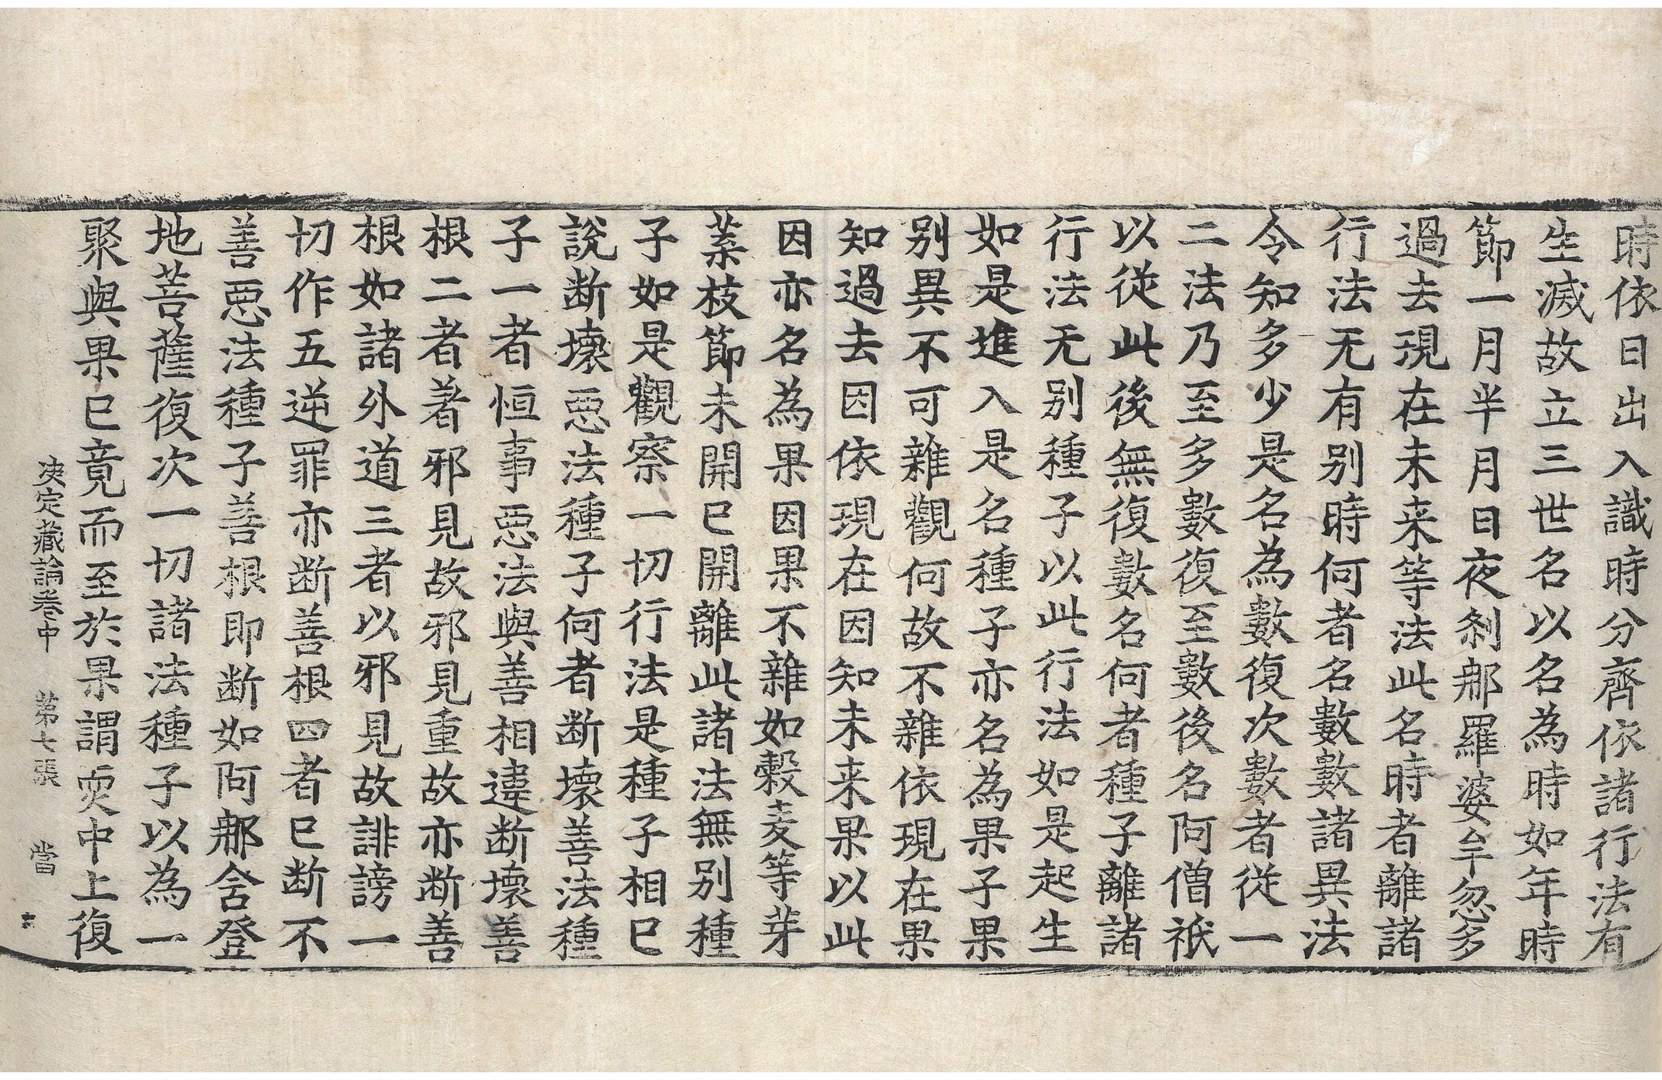 時依日出入識時分齊依諸行法有
生滅故立三世名以名為時如年時
節一月半月日夜刹那羅婆牟忽多
過去現在未来等法此名時者離諸
行法无有別時何者名數數諸異法
令知多少是名為數復次數者從一
二法乃至多數復至數後名阿僧祇
以從此後無復數名何者種子離諸
行法无别種子以此行法如是起生
如是進入是名種子亦名為果子果
別異不可雜觀何故不雜依現在果
知過去因依現在因知未来果以此
因亦名為果因果不雜如穀麦等芽
葉枝節未開已開離此諸法無別種
子如是觀察一切行法是種子相已
說断壞惡法種子何者断壞善法種
子一者恒事惡法與善相違断壞善
根二者著邪見故邪見重故亦断善
根如諸外道三者以邪見故誹謗一
切作五逆罪亦断善根四者已断不
善惡法種子善根即断如阿那含登
地菩薩復次一切諸法種子以為一
聚與果已竟而至於果謂䎡中上復
決定藏論卷中　第七張　當